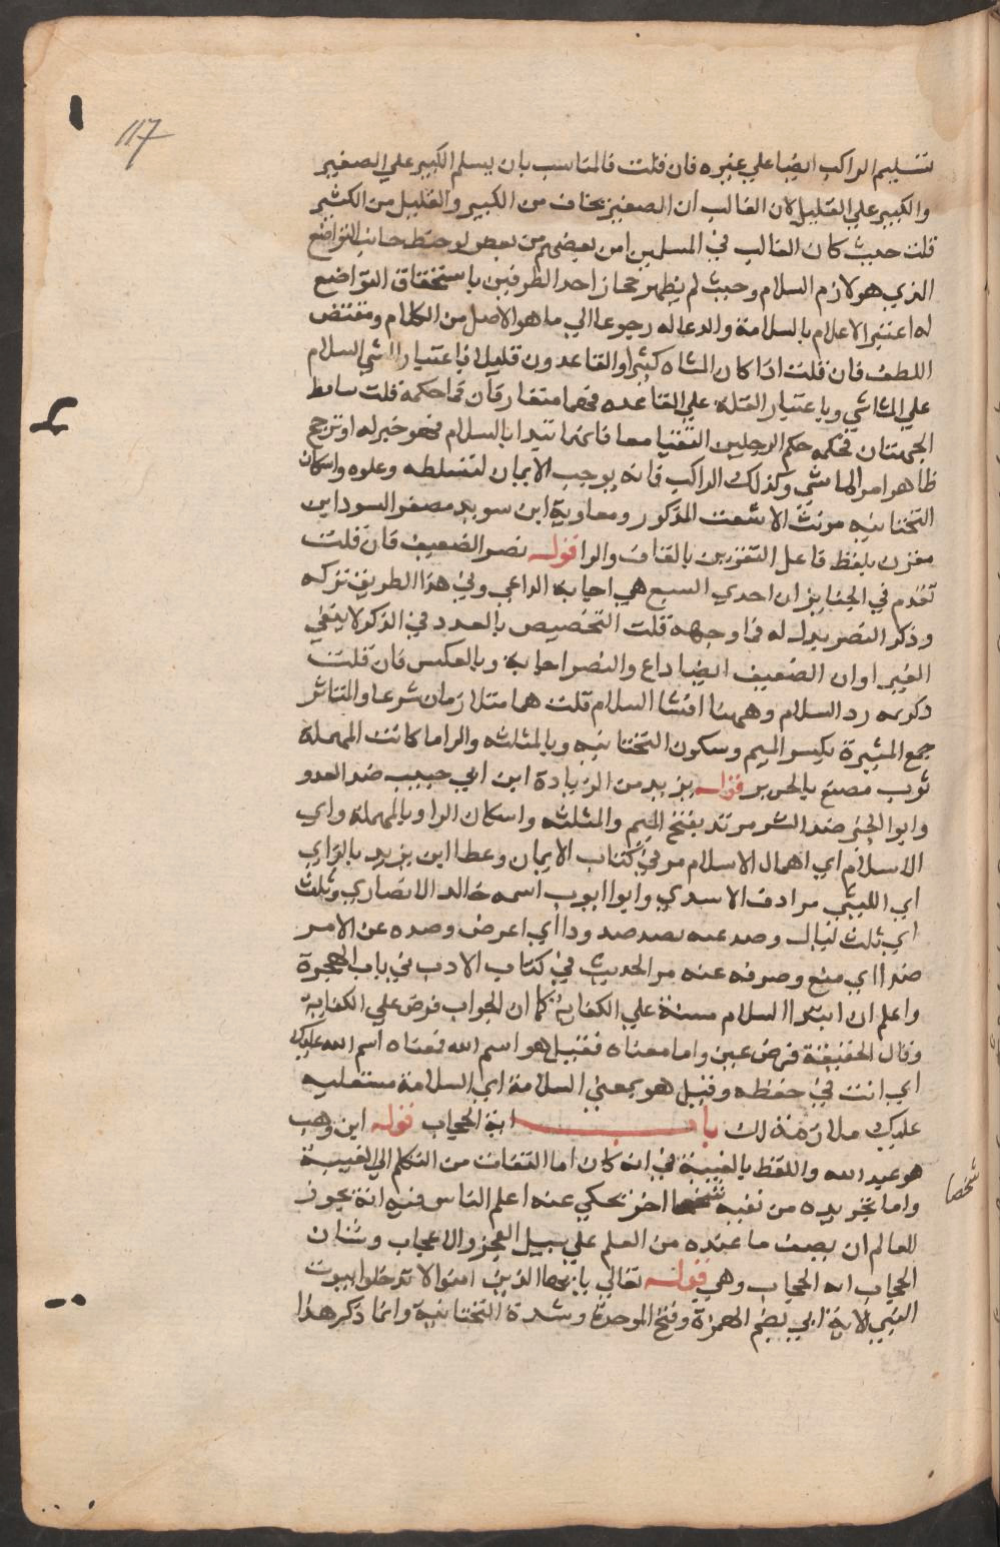 117
تسليم الراكب ايضا علي غيره فان قلت فالمناسب بان يسلم الكبير علي الصغير
والكبير علي القليل لان الغالب ان الصغير يخاف من الكبير والقليل من الكثير
قلت حيث كان الغالب في المسلمين امن بعضهم من بعض لوحظ جانب التواضع
الذي هو لازم السلام وحيث لم يظهر رجحان احد الطرفين باستحقاق التواضع
له اعتبر الاعلام بالسلامة والدعا له رجوعا الي ما هو الاصل من الكلام ومقتضي
اللطف فان قلت اذا كان المشاه كثيرا والقاعدون قليلا فباعتبار المشي السلام
علي الماشي وباعتبار القلة علي القاعد فهما متعارضان فما حكمه قلت تساقط
الجهتان فحكمه حكم الرجلين التقيا معا فايهما ابتدا بالسلام فهو خير له او ترجح
ظاهر امر الماشي وكذلك الراكب فانه يوجب الامان لتسلطه وعلوه واسكان
التحتانيه مونث الاشعث المذكور ومعاوية ابن سويد مصغر السود ابن
مقرن بلفظ فاعل التقرين بالقاف والرا قوله نصر الضعيف فان قلت
تقدم في الجنايز ان احدي السبع هي اجابه الداعي وفي هذا الطريق تركه
وذكر النصر بدله فما وجهه قلت التخصيص بالعدد في الذكر لا ينفي
الغير او ان الضعيف ايضا داع والنصر اجابه وبالعكس فان قلت
ذكر ثمه رد السلام وههنا افشا السلام قلت هما متلازمان شرعا والمياثر
جمع الميثرة بكسر الميم وسكون التحتانيه وبالمثلثه والرا ما كانت المهملة
ثوب مصنع بالحرير قوله يزيد من الزيادة ابن ابي حبيب ضد العدو
وابوا الخير ضد الشر مرثد بفتح الميم والمثلثه واسكان الرا وبالمهملة واي
الاسلام اي اعمال الاسلام مر في كتاب الايمان وعطا ابن يزيد بالزاي
اي الليثي مرادف الاسدي وابوا ايوب اسمه خالد الانصاري وثلث
اي ثلث ليال وصد عنه يصد صدودا اي اعرض وصده عن الامر
صدا اي منع وصرفه عنه مر الحديث في كتاب الادب في باب الهجرة
واعلم ان ابتدا السلام سنة علي الكفاية كما ان الجواب فرض علي الكفاية
وقال الحنيفة فرض عين واما معناه فقيل هو اسم الله فمعناه اسم الله عليك
اي انت في حفظه وقيل هو بمعني السلامة اي السلامة مستعليه
عليك ملازمة لك باب اية الحجاب قوله ابن وهب
هو عبد الله واللفظ بالغيبة في انه كان اما التفات من التكلم الي الغيبة
واما تجريده من نفسه شخصا اخر يحكي عنه اعلم الناس فيه انه يجوز
للعالم ان يصف ما عنده من العلم علي سبيل العجز والاعجاب وشان
الحجاب اية الحجاب وهي قوله تعالي يا ايها الذين امنوا لا تدخلوا بيوت
النبي الاية ابي بضم الهمزة وفتح الموحدة وشدة التحتانية وانما ذكر هذا
شخصا